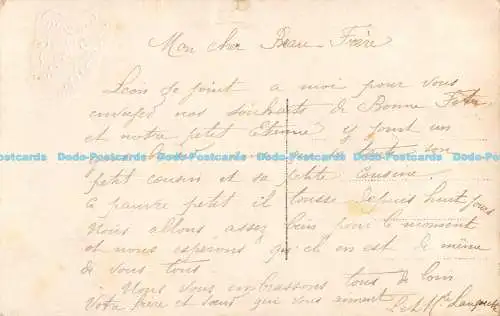 Mon cher Beau-Frère
Léon se joint a moi pour vous
envoyer nos souhaits de Bonne Fête
et notre petit Etienne y joint un
son
petit cousin et sa petite cousine.
pauvre petit il tousse depuis huit jours
Nous allons assez bien pour le moment
et nous espérons qu'il en est de même
de vous tous
Nous vous embrassons tous de loin
Votre frère et sœur qui vous aiment
L et M
Dodo-Postcards Dodo-Postcards Dodo-Postcards Dodo-Postcards